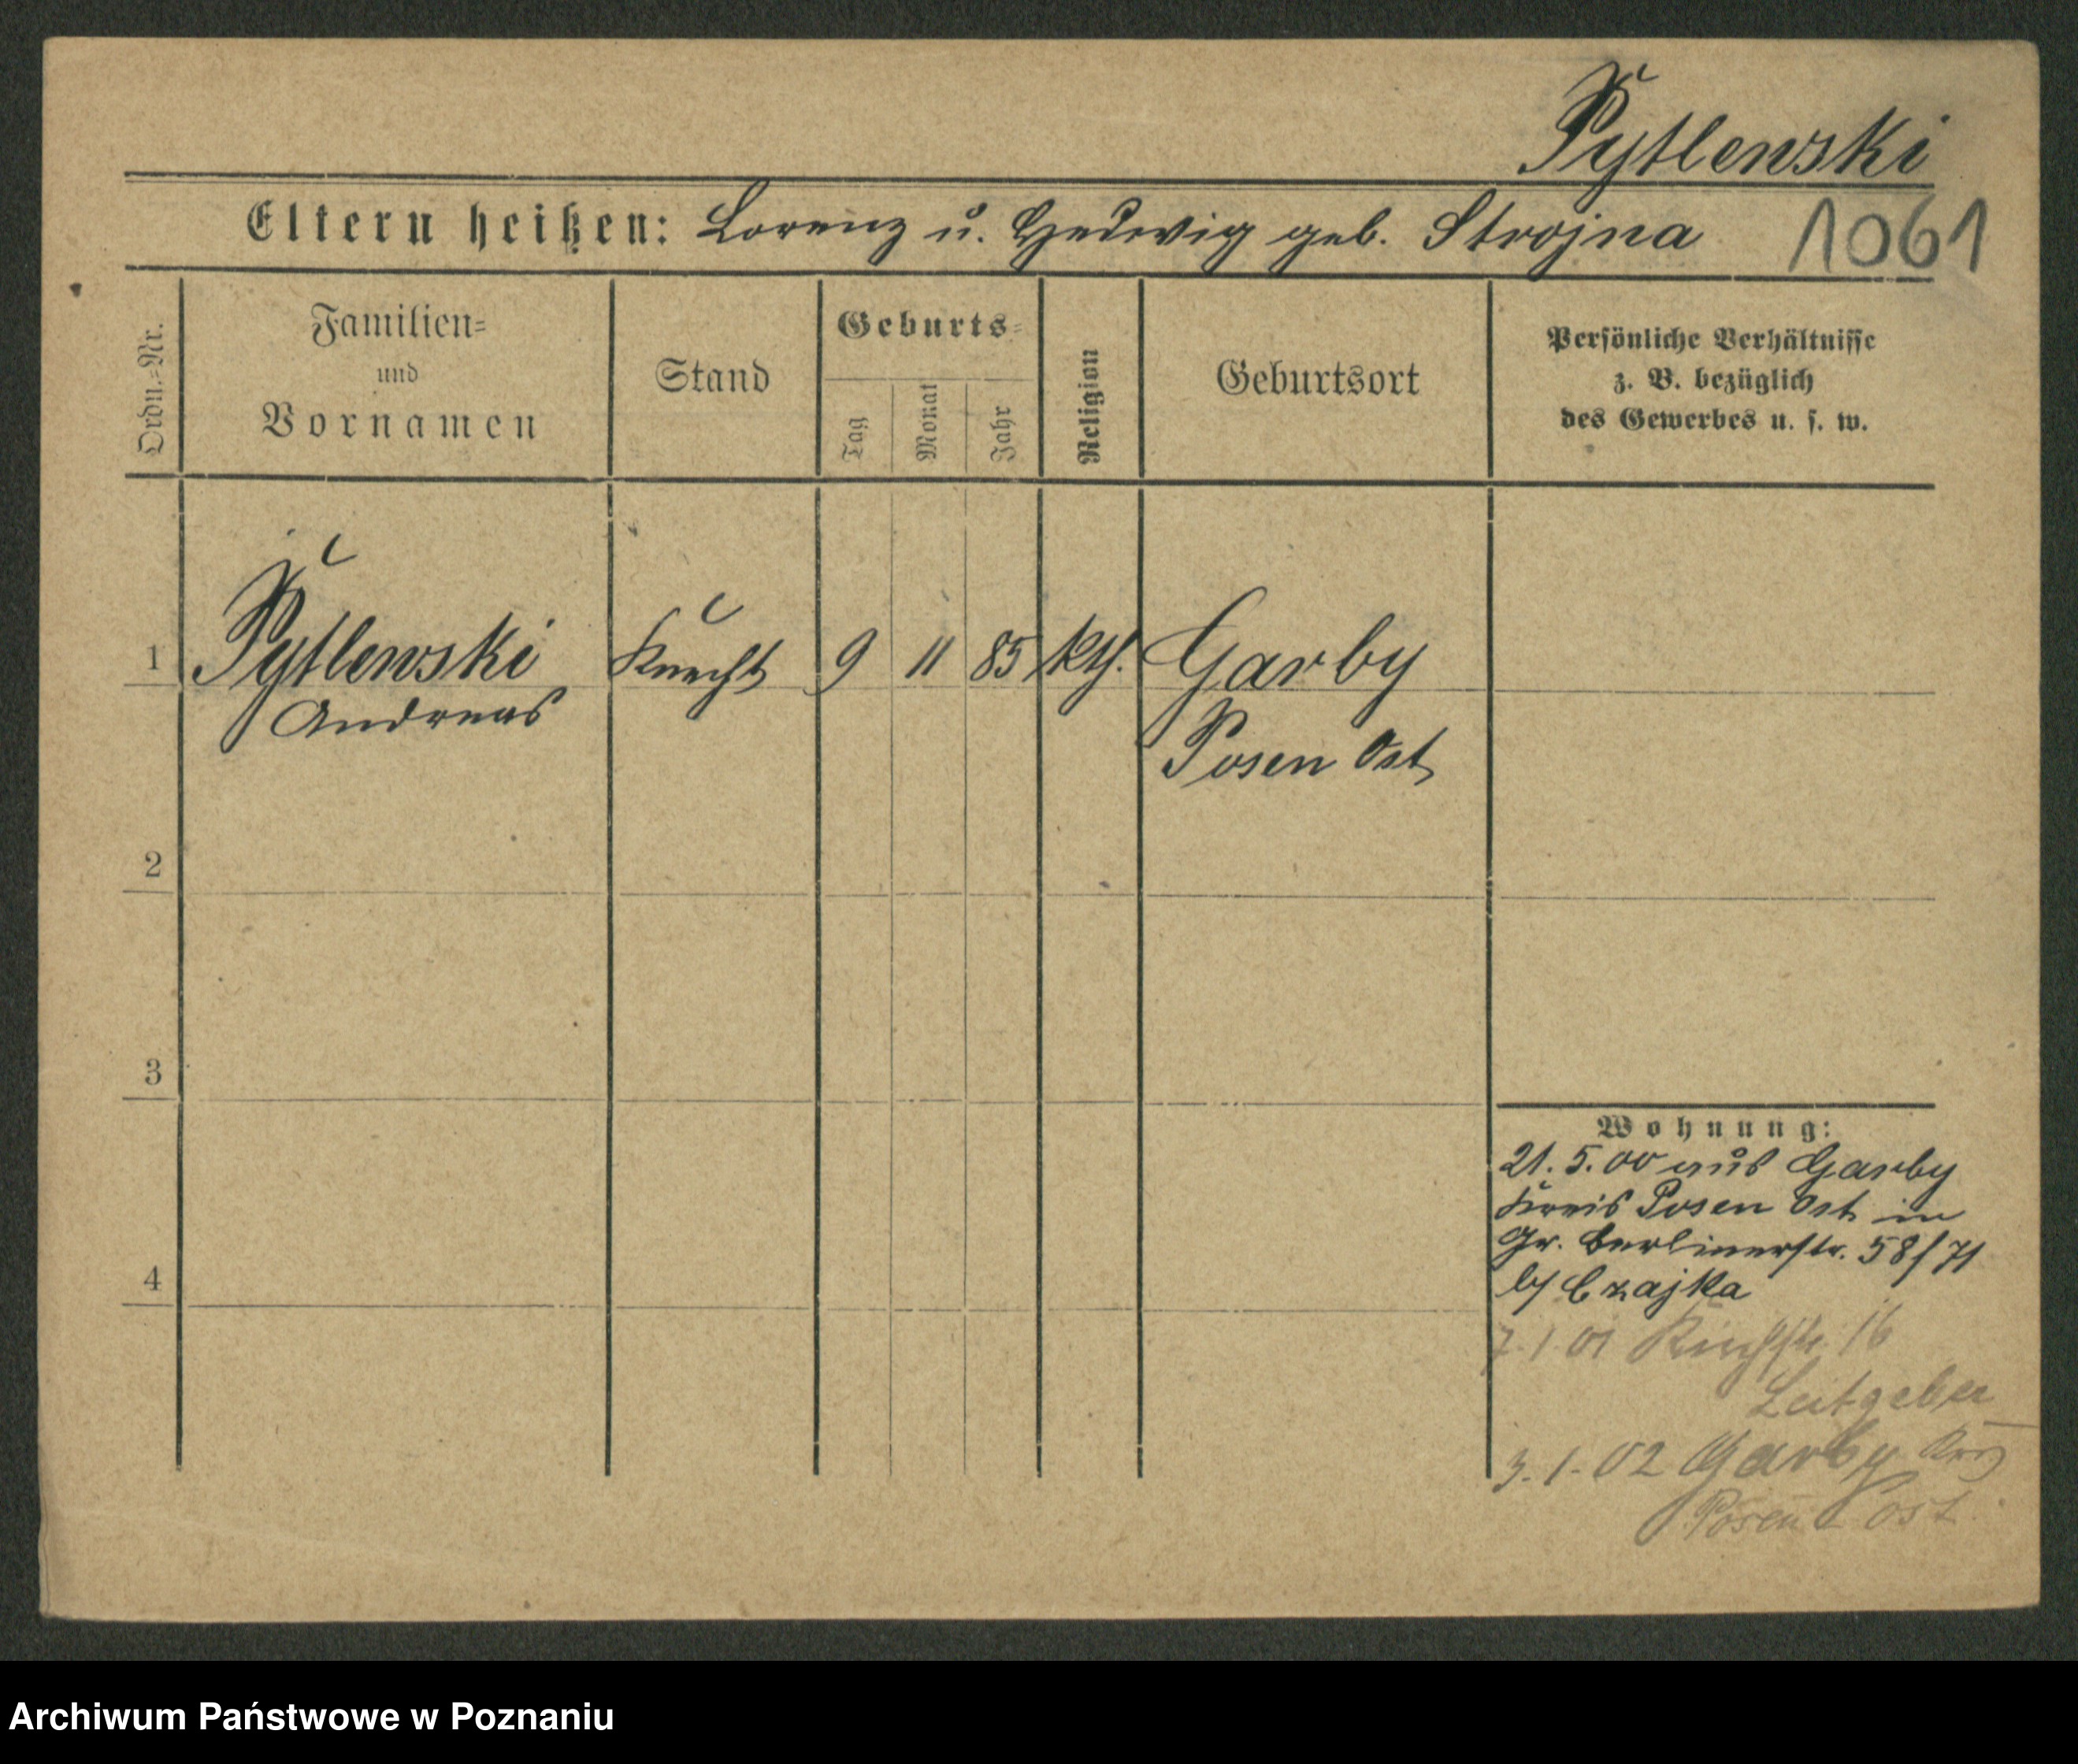 Pytlewski
Eltern heißen: Lorenz ŭ. Hedwig geb. Strojna 1061
Ordn.=Nr.
Familien=
und
Vornamen
Stand
Geburts=
Tag
Monat
Jahr
Religion
Geburtsort
Persönliche Verhältnisse
z. B. bezüglich
des Gewerbes u. s. w.
1 Pytlewski Knecht 9 11 85 kth. Garby
Andreas
Posen Ost
2
3
4
Wohnung:
21. 5. 00 aus Garby
Kreis Posen Ost in
Gr. Berlinerstr. 58/71
b/ Czajka
7. 1 01 16
Leitgeber
3. 1. 02 Garby Krs
Posen Ost.
Archiwum Państwowe w Poznaniu